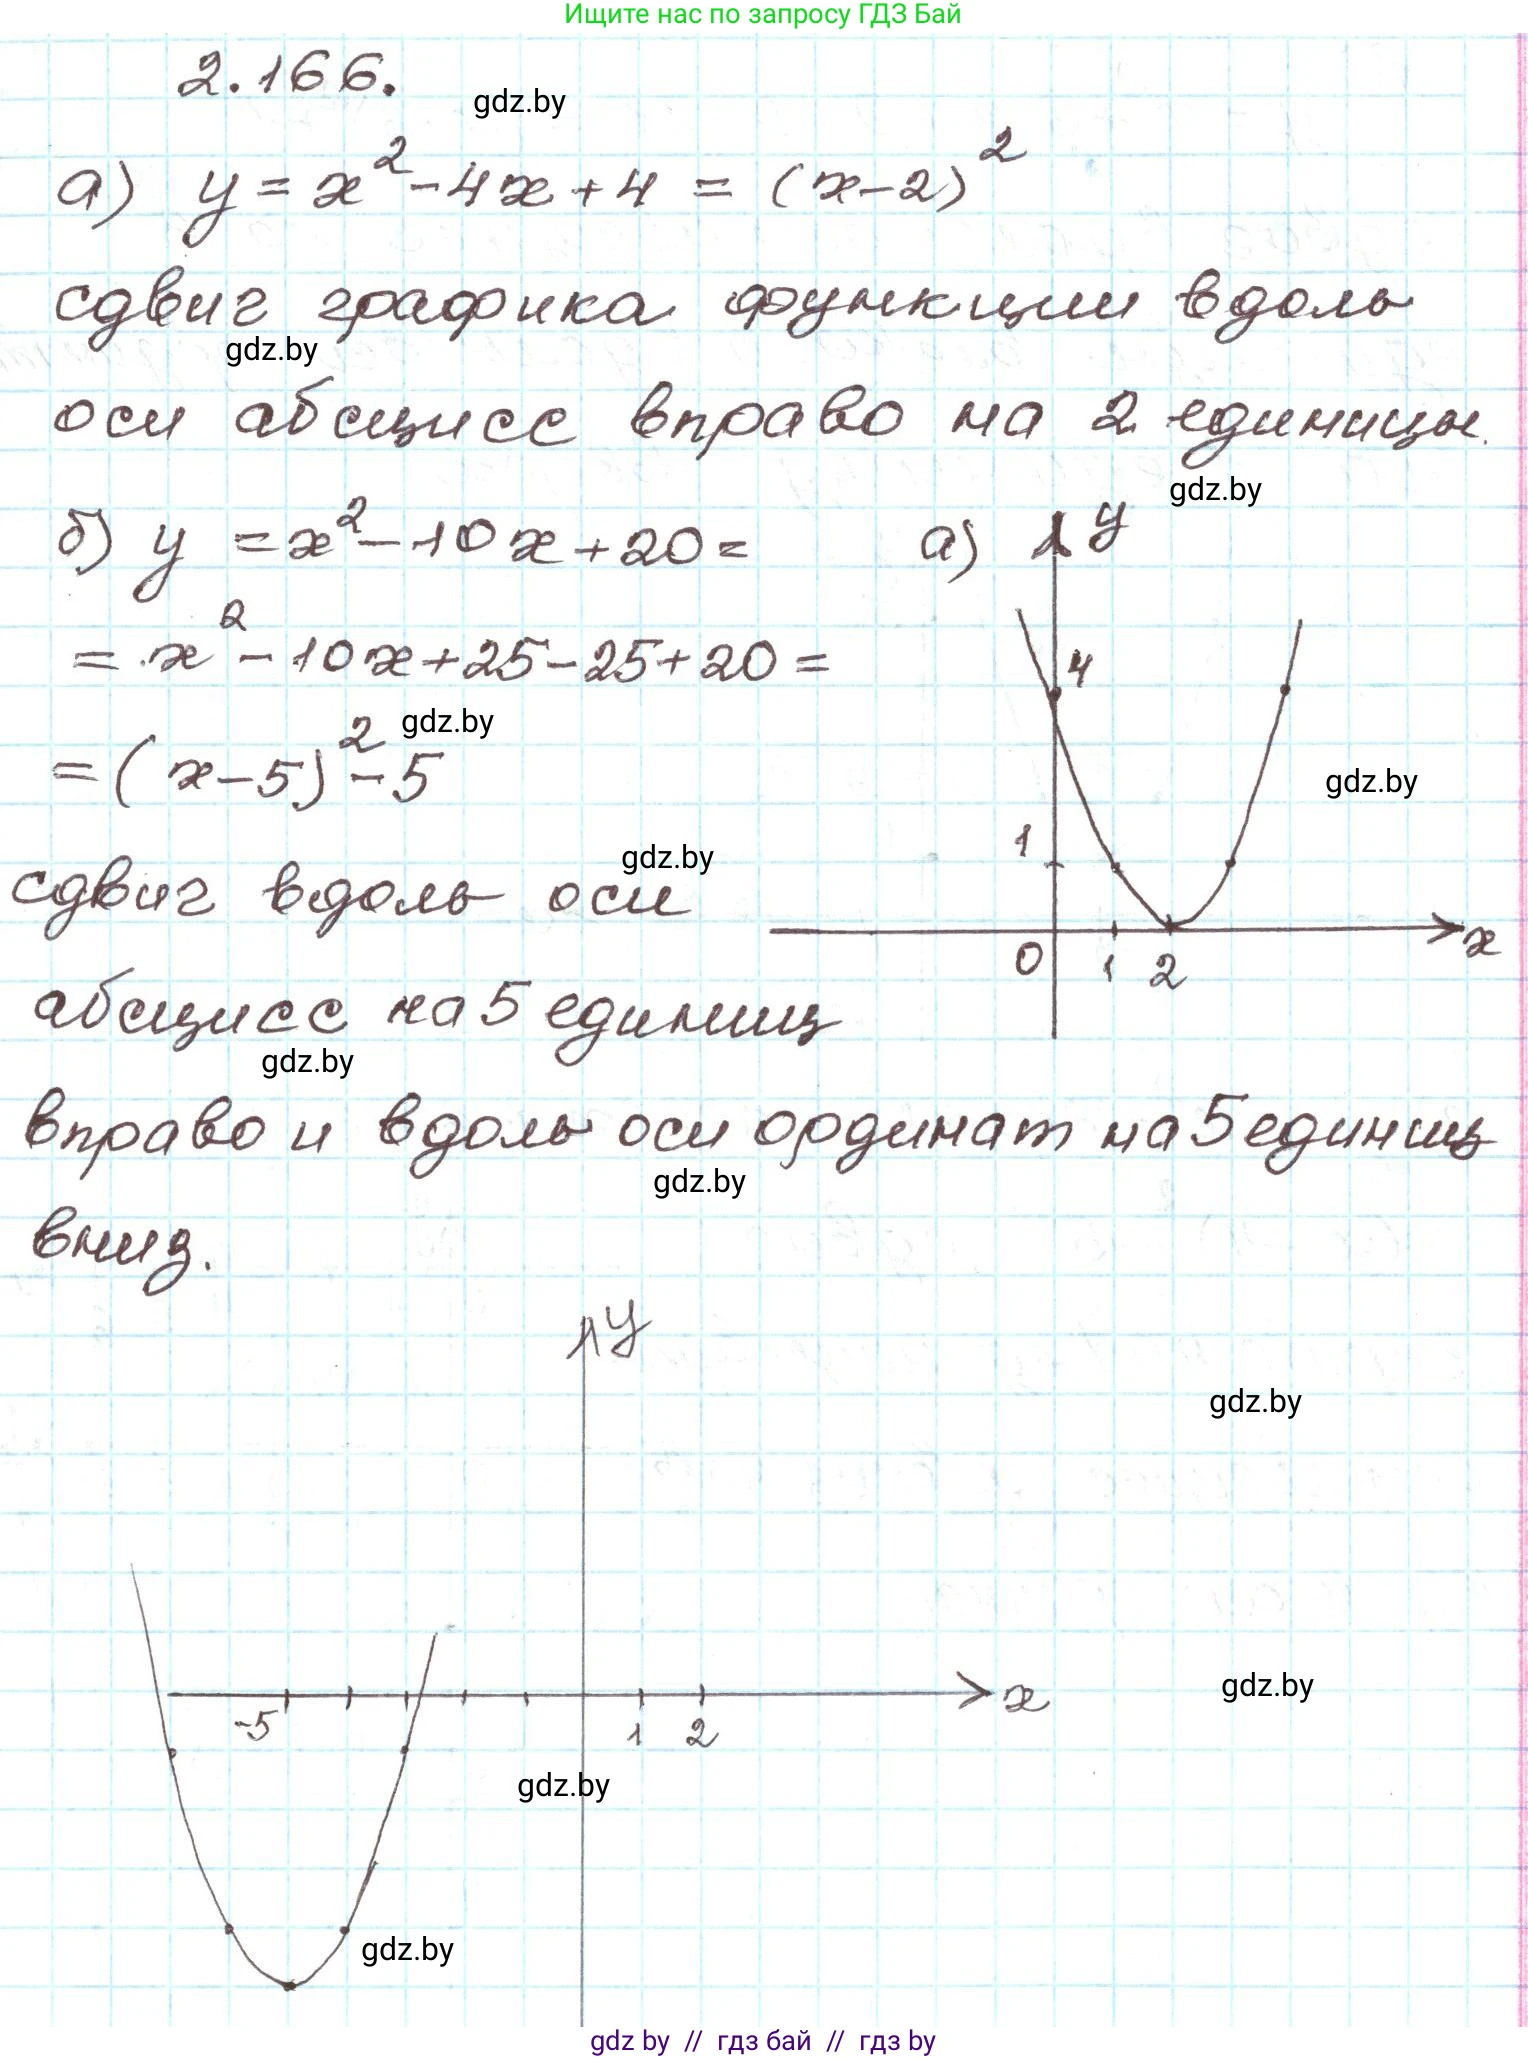 Ищите нас по запросу ГДЗ Бай
2.166.
gdz.by
а) y = x² - 4x + 4 = (x - 2)²
сдвиг графика функции вдоль
gdz.by
оси абсцисс вправо на 2 единицы.
gdz.by
б) y = x² - 10x + 20 =
= x² - 10x + 25 - 25 + 20 =
gdz.by
= (x - 5)² - 5
gdz.by
сдвиг вдоль оси
абсцисс на 5 единиц
gdz.by
вправо и вдоль оси ординат на 5 единиц
gdz.by
вниз.
а) y
4
gdz.by
1
0 1 2 x
y
gdz.by
gdz.by
-5 1 2 x
gdz.by
gdz.by
gdz by // гдз бай // гдз by